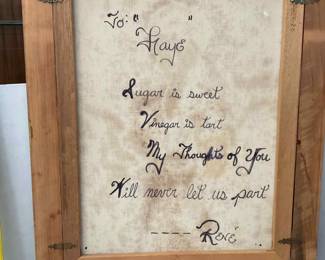 To: " "
Faye
Sugar is sweet
Vinegar is tart
My Thoughts of You
Will never let us part
---- René